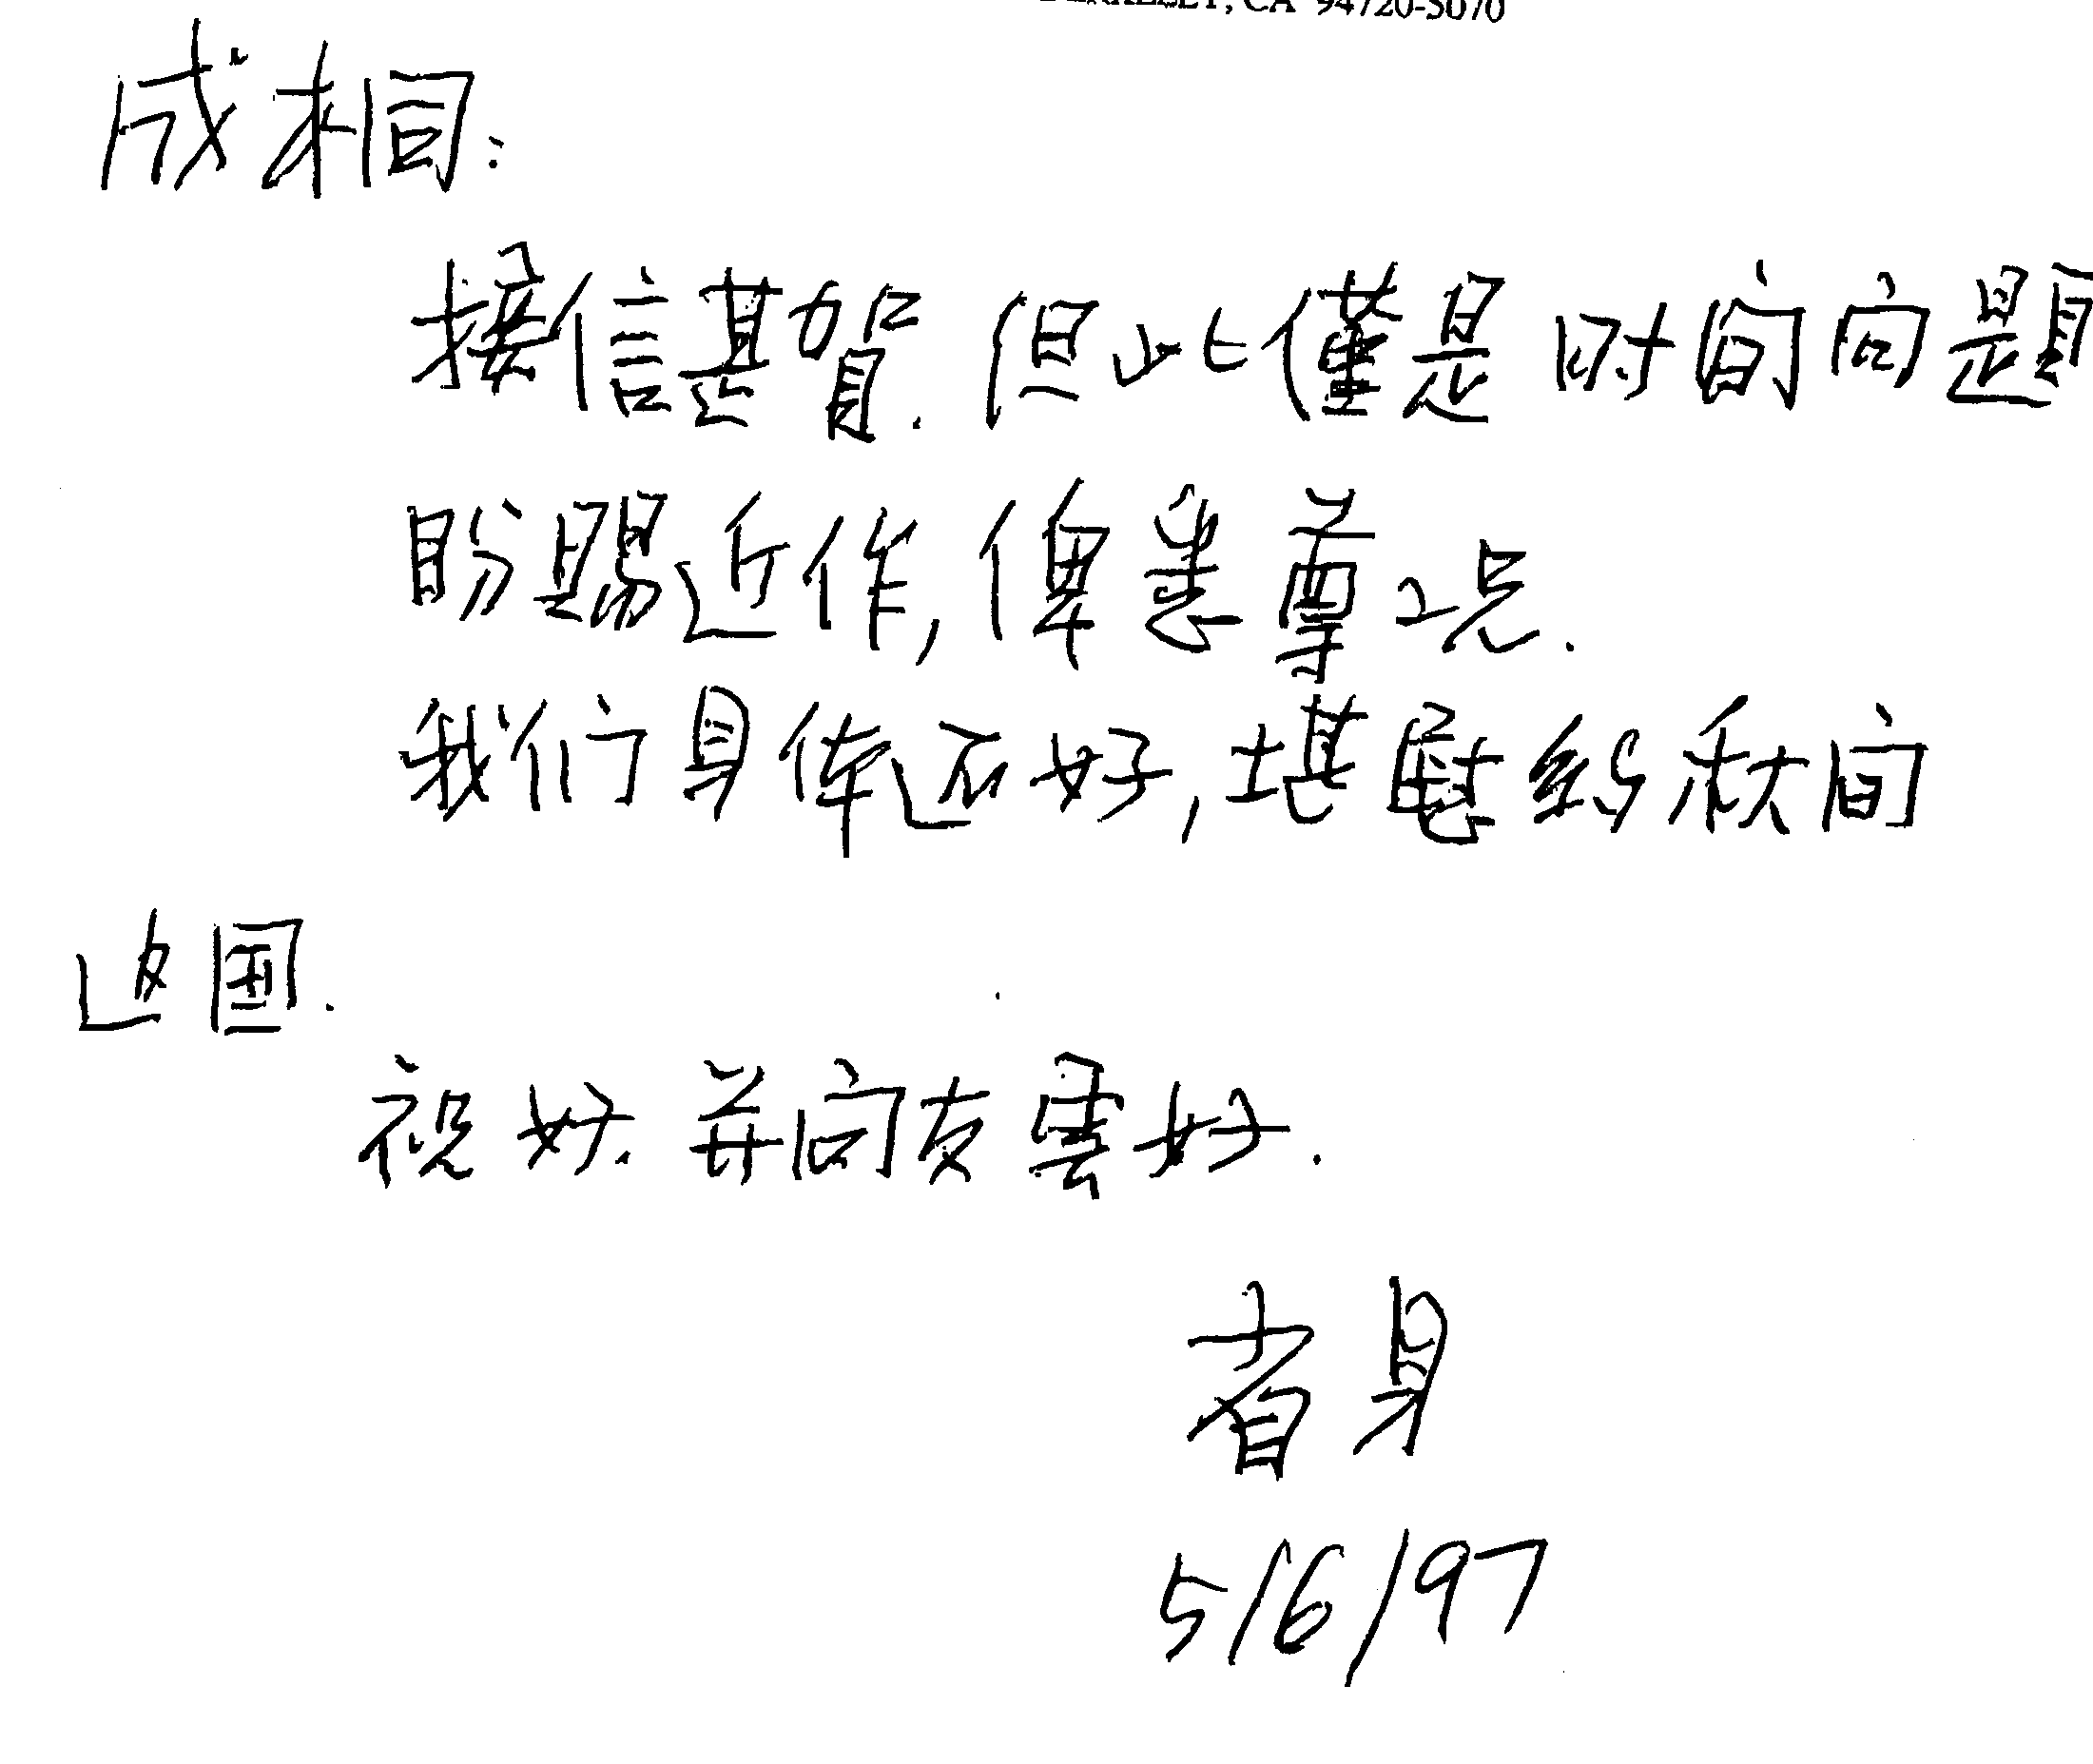 BERKELEY, CA 94720-5070
成桐:
接信甚賀.但此僅是时间问题
盼賜近作,俾悉尊况.
我们身体还好,堪慰.约秋间
返国.
祝好.并问友雲好.
省身
5/6/97